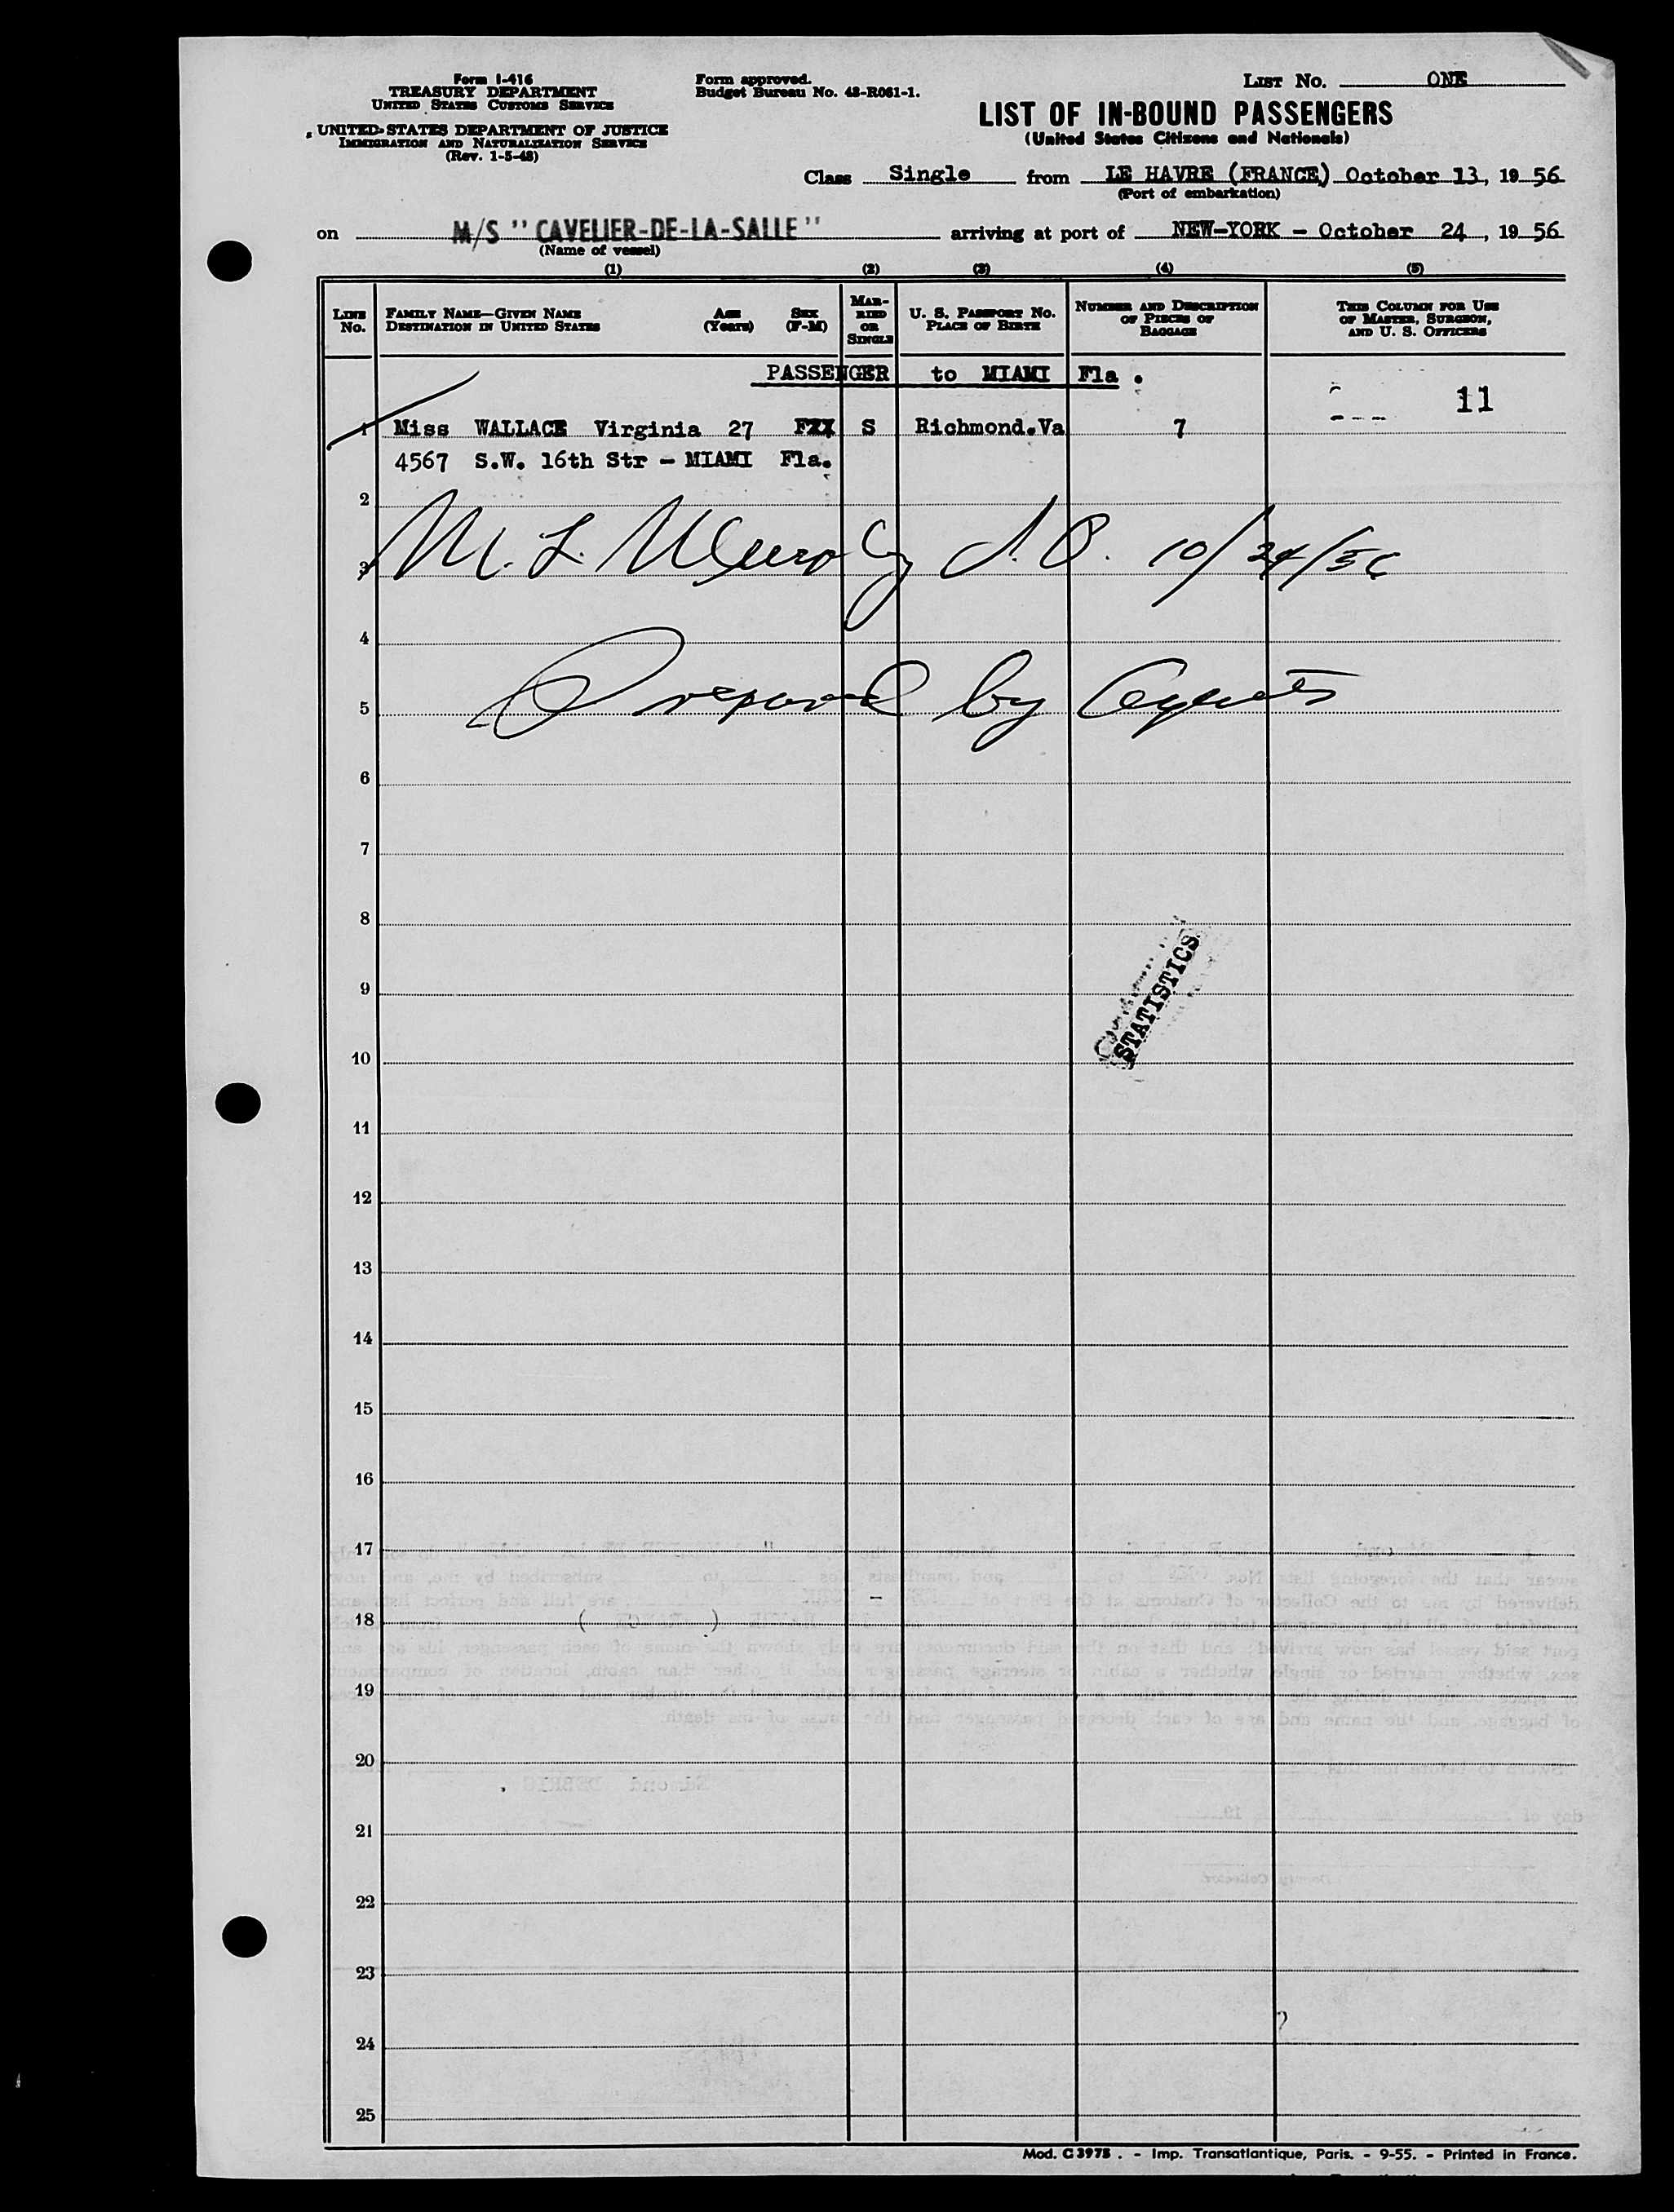 Form I-416
TREASURY DEPARTMENT
UNITED STATES CUSTOMS SERVICE
UNITED STATES DEPARTMENT OF JUSTICE
IMMIGRATION AND NATURALIZATION SERVICE
(Rev. 1-5-48)
Form approved.
Budget Bureau No. 43-R061-1.
LIST No. ONE
LIST OF IN-BOUND PASSENGERS
(United States Citizens and Nationals)
Class Single from LE HAVRE (FRANCE) October 13, 19 56
(Port of embarkation)
on M/S "CAVELIER-DE-LA-SALLE" arriving at port of NEW-YORK - October 24, 19 56
(Name of vessel)
(1) (2) (3) (4) (5)
LINE No.
FAMILY NAME—GIVEN NAME DESTINATION IN UNITED STATES
AGE (Years)
SEX (F-M)
MARRIED OR SINGLE
U. S. PASSPORT No. PLACE OF BIRTH
NUMBER AND DESCRIPTION OF PIECES OF BAGGAGE
THIS COLUMN FOR USE OF MASTER, SURGEON, AND U. S. OFFICERS
PASSENGER to MIAMI Fla .
11
1 Miss WALLACE Virginia 27 FXX S Richmond.Va 7
4567 S.W. 16th Str - MIAMI Fla.
2
M. L. Murphy I.O. 10/24/56
3
4
Prepared by Agents
5
6
7
8
STATISTICS
9
10
11
12
13
14
15
16
17
18
19
20
21
22
23
24
25
Mod. C 3973 . - Imp. Transatlantique, Paris. - 9-55. - Printed in France.